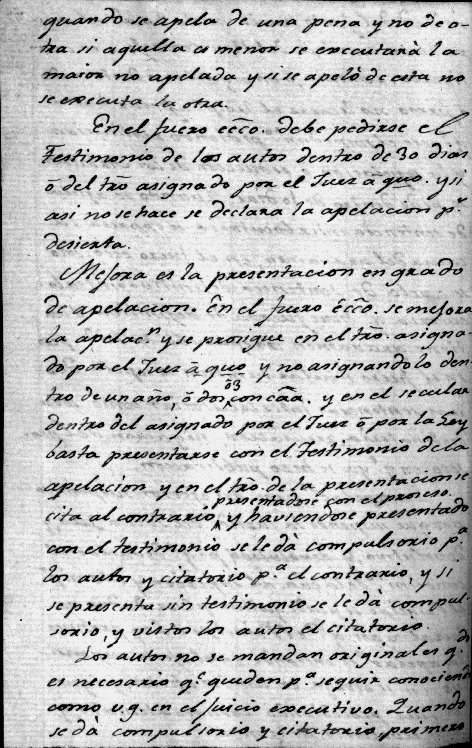 quando se apela de una pena y no de o-
tra si aquella es menor se executarà la
maior no apelada y si se apelò de esta no
se executa la otra.
En el fuero ecc͞co. debe pedirse el
Testimonio de los autos dentro de 30 dias
ô del tr͞o asignado por el Juez â quo. y si
asi no se hace se declara la apelacion p.ʳ
desierta.
Mejora es la presentacion en grado
de apelacion. En el fuero ecc͞o. se mejora
la apelac.ⁿ y se prosigue en el tr͞o. asigna-
do por el Juez â quo y no asignandolo den-
tro de un año, ô dos, con ca͞a. y en el secular
dentro del asignado por el Juez ô por la Ley
basta presentarse con el Testimonio de la
apelacion y en el tr͞o. de la presentacion se
presentadose con el proceso
cita al contrario, y haviendose presentado
con el testimonio se le dà compulsorio p.ᵃ
los autos y citatorio p.ᵃ el contrario, y si
se presenta sin testimonio se le dà compul-
sorio, y vistos los autos el citatorio.
Los autos no se mandan originales q.ᵈᵒ
es necesario q.ᵉ queden p.ᵃ seguir conociend
como v.g. en el juicio executivo. Quando
se dà compulsorio y citatorio, primero